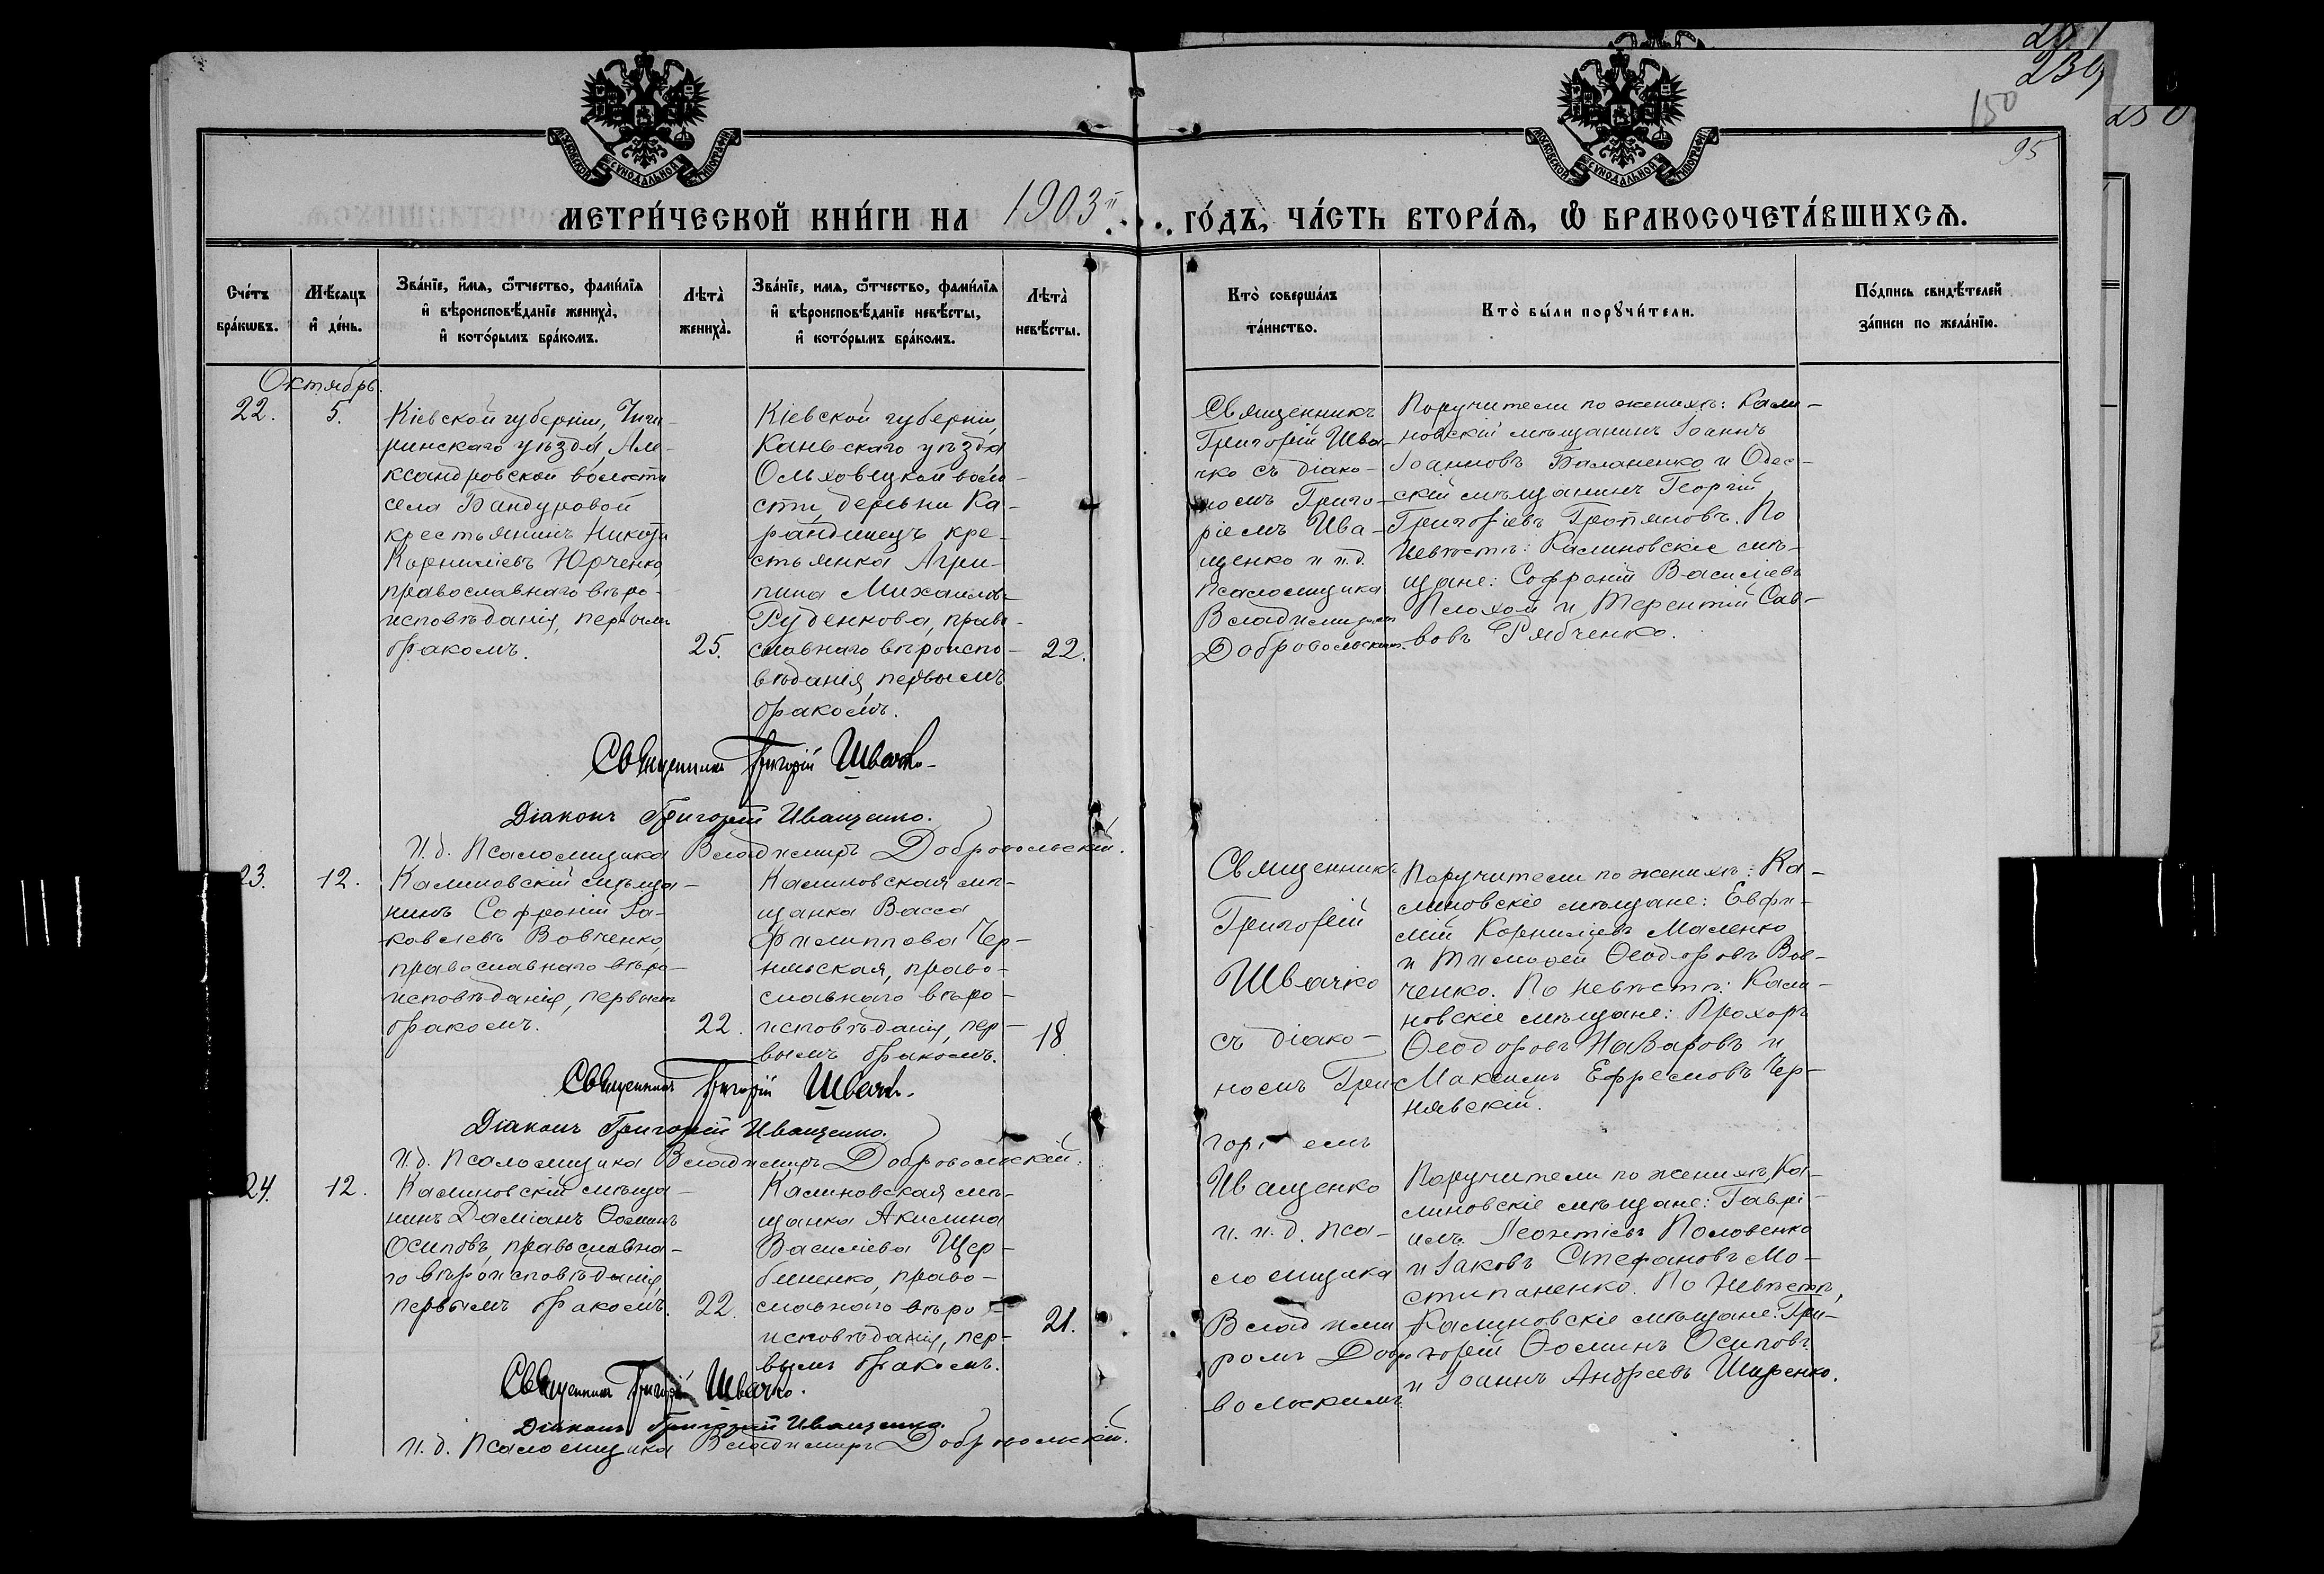 251
239
250
150
95
МОСКОВСКОЙ СѴНОДАЛЬНОЙ ТИПОГРАФІИ
МОСКОВСКОЙ СѴНОДАЛЬНОЙ ТИПОГРАФІИ
МЕТРИ́ЧЕСКОЙ КНИ́ГИ НА 1903й ГО́ДЪ, ЧА́СТЬ ВТОРА́Ѧ, Ѽ БРАКОСОЧЕТА́ВШИХСѦ.
Сче́тъ
бра́кѡвъ.
Мѣ́сяцъ
и҆ де́нь.
Зва́нїе, и҆́мѧ, ѻ҆́тчество, фами́лїѧ
и҆ вѣроисповѣ́данїе жениха̀,
и҆ кото́рымъ бра́комъ.
Лѣта̀
жениха̀.
Зва́нїе, имѧ, ѻ҆́тчество, фами́лїѧ
и҆ вѣроисповѣ́данїе невѣ́сты,
и҆ кото́рымъ бра́комъ.
Лѣта̀
невѣ́сты.
Кто̀ соверша́лъ
та́инство.
Кто̀ бы́ли порꙋчи́тели.
По́дпись свидѣ́телей
за́писи по жела́нїю.
Октябрь.
22.
5.
Кіевской губерніи, Чиги-
ринскаго уѣзда, Але-
ксандровской волости
села Бандуровой
крестьянинъ Никита
Корниліевъ Юрченко,
православнаго вѣро-
исповѣданія, первымъ
бракомъ.
25.
Кіевской губерніи,
Каневскаго уѣзда
Ольховецкой воло-
сти, деревни Ка-
рандинецъ кре-
стьянка Агри-
пина Михаилов-
Руденкова, право-
славнаго вѣроиспо-
вѣданія, первымъ
бракомъ.
22.
Священникъ
Григорій Шва-
чко съ діако-
номъ Григо-
ріемъ Ива-
щенко и и.д.
псаломщика
Владимиромъ
Добровольскимъ.
Поручители по женихѣ: Кали-
новскій мѣщанинъ Іоаннъ
Іоанновъ Баланенко и Одес-
скій мѣщанинъ Георгій
Григоріевъ Тропяновъ. По
невѣстѣ: Калиновскіе мѣ-
щане: Софроній Василіевъ
Плохой и Терентій Сав-
вовъ Рябченко.
Священникъ Григорій Швачко
Діаконъ Григорій Иващенко.
И.д. Псаломщика Владимиръ Добровольскій.
23.
12.
Калиновскій мѣща-
нинъ Софроній Іа-
ковлевъ Вовченко,
православнаго вѣро-
исповѣданія, первымъ
бракомъ.
22.
Калиновская мѣ-
щанка Васса
Филиппова Чер-
нявская, право-
славнаго вѣро-
исповѣданія, пер-
вымъ бракомъ.
18.
Священникъ
Григорій
Швачко
съ діако-
номъ Гри-
горіемъ
Иващенко
и и.д. пса-
ломщика
Владими
ромъ Добро
вольскимъ
Поручители по женихѣ: Ка-
линовскіе мѣщане: Евфи-
мій Корниліевъ Маленко
и Тимоѳей Ѳеодоровъ Вов-
ченко. По невѣстѣ: Кали-
новскіе мѣщане: Прохоръ
Ѳеодоровъ Назаровъ и
Максимъ Ефремовъ Чер-
нявскій.
Священникъ Григорій Швачко.
Діаконъ Григорій Иващенко.
И.д. Псаломщика Владимиръ Добровольскій.
24.
12.
Калиновскій мѣща-
нинъ Даміанъ Ѳоминъ
Осиповъ, православна-
го вѣроисповѣданія,
первымъ бракомъ.
22.
Калиновская мѣ-
щанка Акилина
Василіева Щер-
биненко, право-
славнаго вѣро-
исповѣданія, пер-
вымъ бракомъ.
21.
Поручители по женихѣ, Ка-
линовскіе мѣщане: Гаврі-
илъ Леонтіевъ Половенко
и Іаковъ Стефановъ Мо-
стипаненко. По невѣстѣ,
Калиновскіе мѣщане: Гри-
горій Ѳоминъ Осиповъ
и Іоаннъ Андреевъ Шаренко.
Священникъ Григорій Швачко.
Діаконъ Григорій Иващенко.
И.д. Псаломщика Владимиръ Добровольскій.